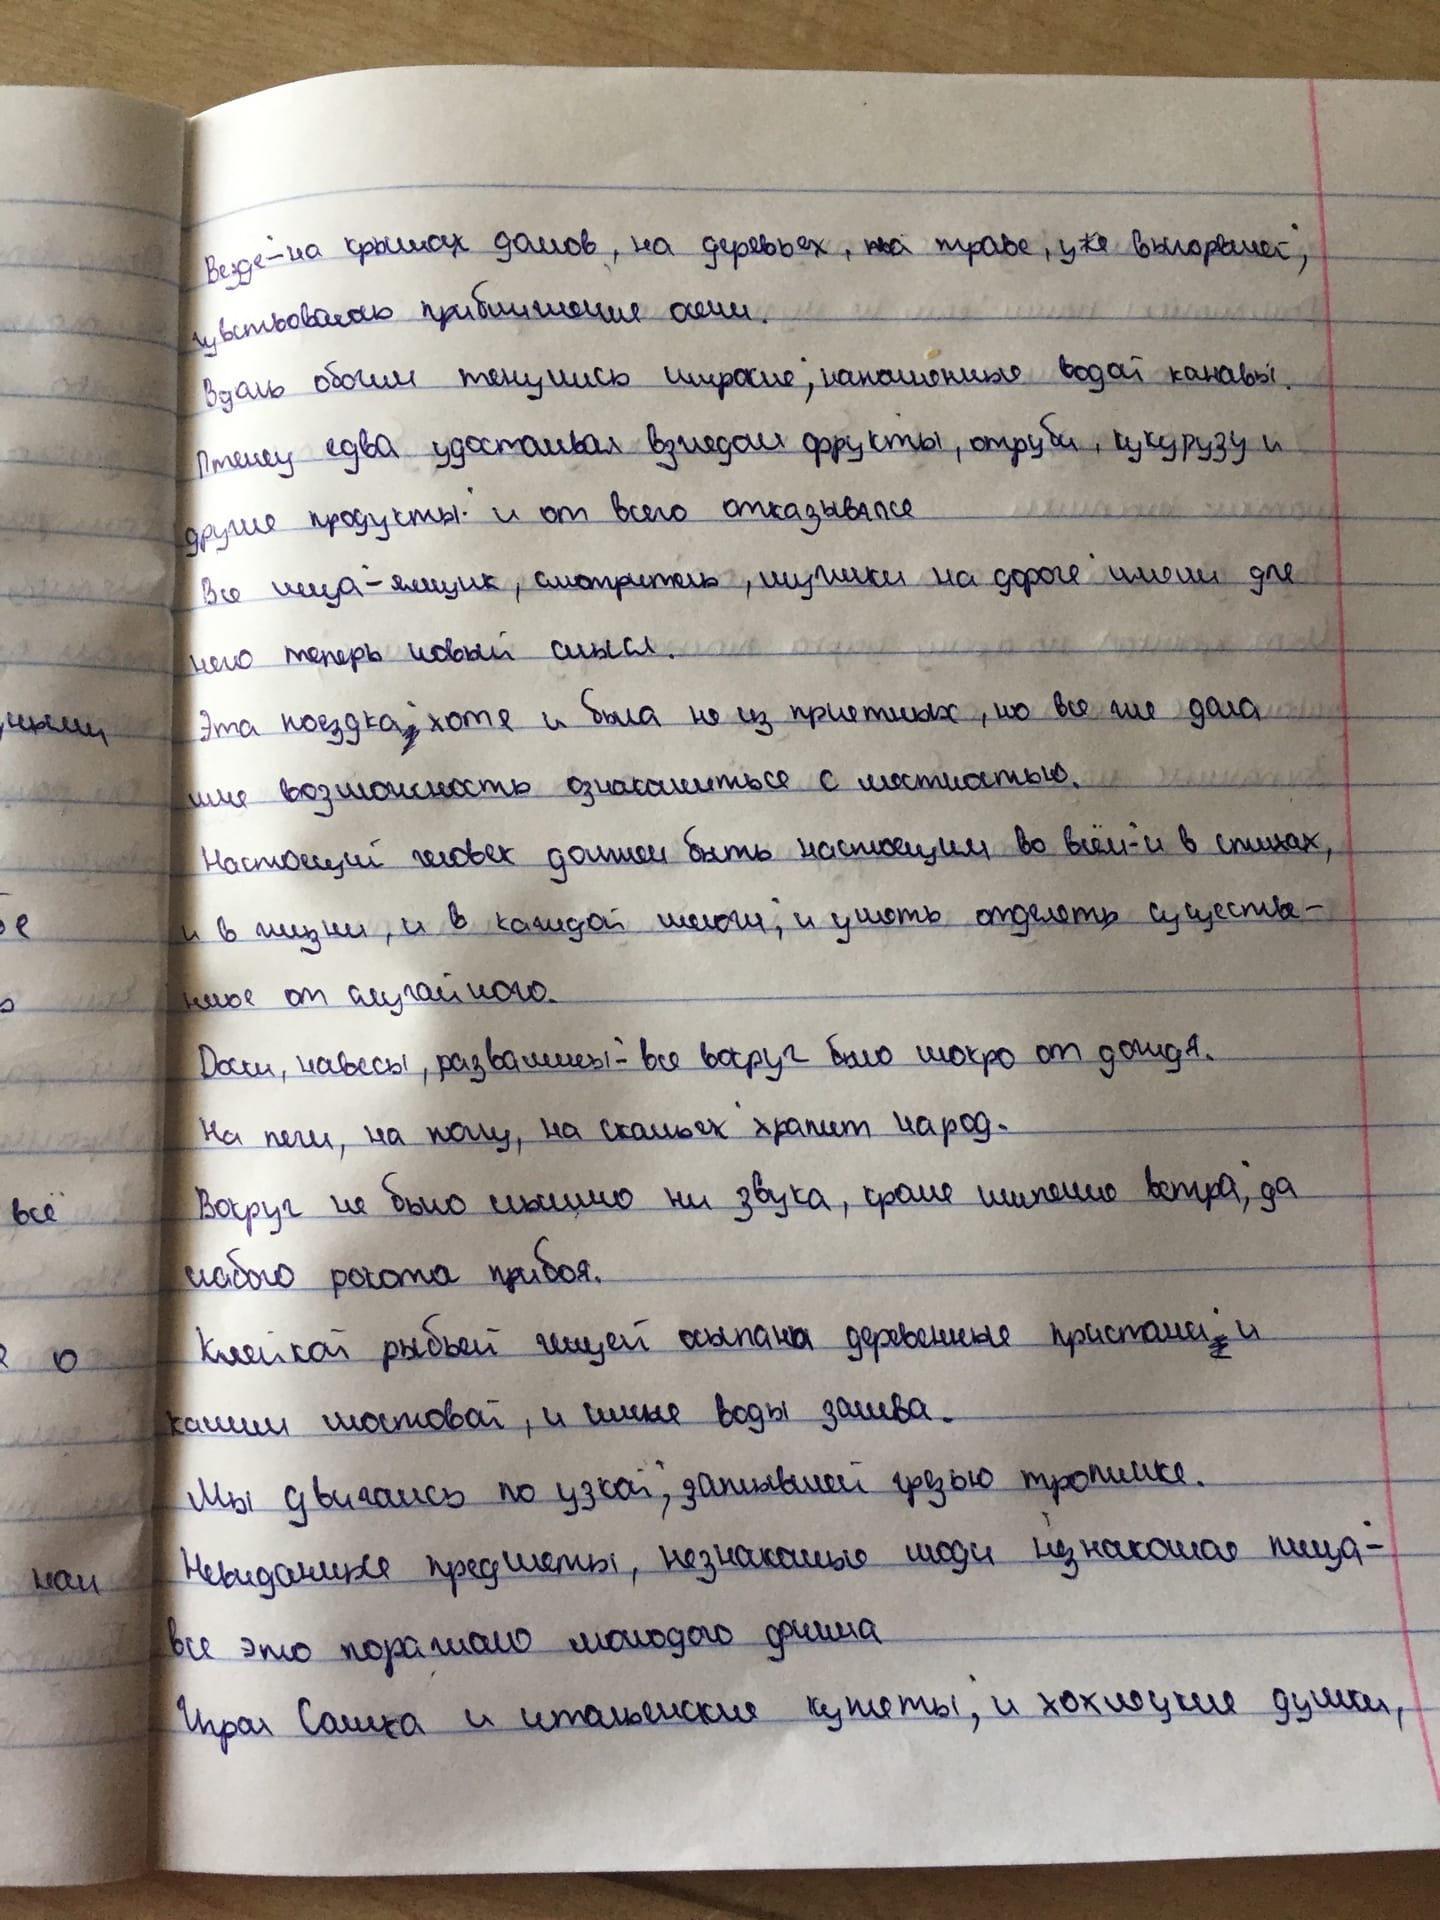 Везде-на крышах домов, на деревьях, на траве, уже выгоревшей,
чувствовалось приближение осени.
Вдоль обочин тянулись широкие, наполненные водой канавы.
Птенец едва удостаивал взглядом фрукты, отруби, кукурузу и
другие продукты и от всего отказывался
Все лица-ямщик, смотритель, мужики на дороге имели для
него теперь новый смысл.
Эта поездка, хотя и была не из приятных, но все же дала
мне возможность ознакомиться с местностью.
Настоящий человек должен быть настоящим во всём-и в стихах,
и в жизни, и в каждой мелочи, и уметь отделять существе-
нное от случайного.
Дома, навесы, развалины-все вокруг было мокро от дождя.
На печи, на полу, на скамьях храпит народ.
Вокруг не было слышно ни звука, кроме шипение ветра, да
слабого рокота прибоя.
Клейкой рыбьей чешуей осыпана деревенные пристани, и
камни мостовой, и синие воды залива.
Мы двигались по узкой, заплывшей грязью тропинке.
Невиданные предметы, незнакомые люди незнакомая пища-
все это поражало молодого физика
Играл Сашка и итальянские куплеты, и хохлацкие думки,
ными
бе
всё
о
наи